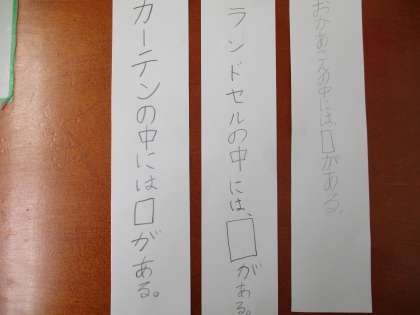 カーテンの中には□がある。
ランドセルの中には、□がある。
おかあさんの中には、□がある。